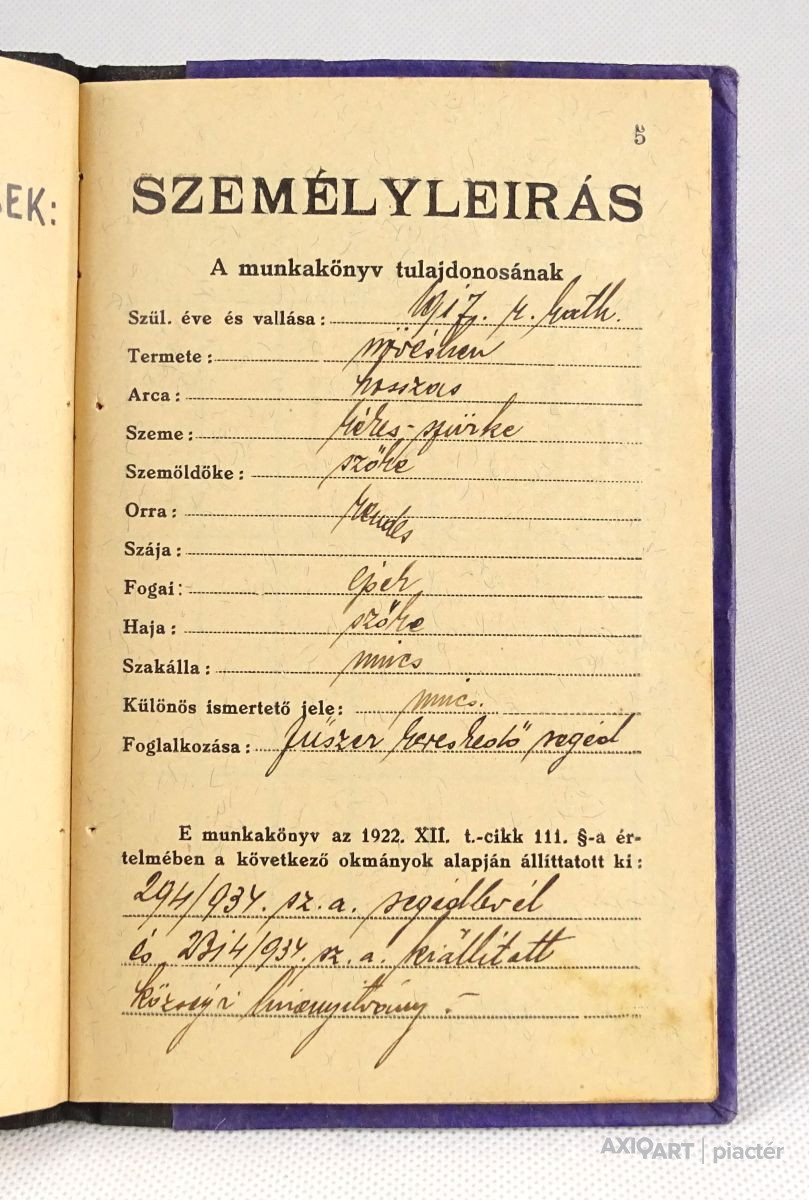 SEK:
5
SZEMÉLYLEIRÁS
A munkakönyv tulajdonosának
Szül. éve és vallása: 1917. r. kath.
Termete:
Arca: hosszas
Szeme: kékes-szürke
Szemöldöke: szőke
Orra: rendes
Szája:
Fogai: épek
Haja: szőke
Szakálla: nincs
Különös ismertető jele: nincs.
Foglalkozása: fűszer kereskedő segéd
E munkakönyv az 1922. XII. t.-cikk 111. §-a ér-
telmében a következő okmányok alapján állíttatott ki:
294/934. sz. a. segédlevél
és 2314/934. sz. a. kiállított
községi
AXIOART | piactér